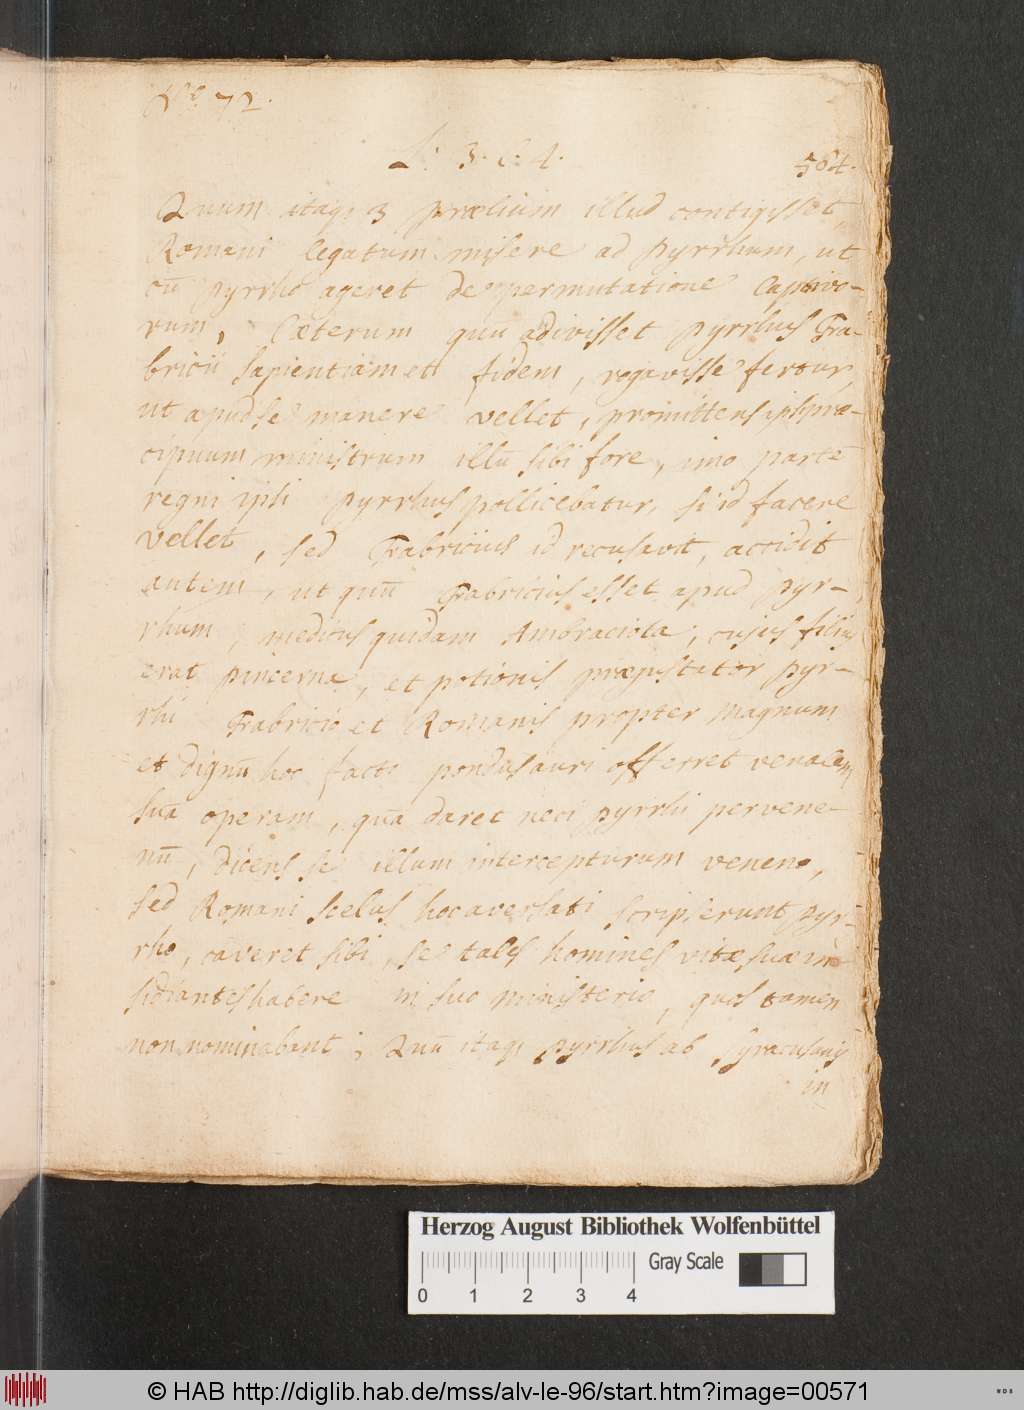 No 72.
L: 3. C: 4.
564.
Quum itaq; 3 prælium illud contigisset,
Romani legatum misere ad Pyrrhum, ut
cū Pyrrho ageret de permutatione Captivo-
rum, Cæterum quū adivisset Pyrrhus Fa-
bricii sapientiam et fidem, rogavisse fertur,
ut apud se manere vellet, promittens ipsi præ-
cipuum ministrum illū sibi fore, imo partē
regni ipsi Pyrrhus pollicebatur, si id facere
vellet, sed Fabricius id recusavit, accidit
autem, ut quū Fabricius esset apud Pyr-
rhum, medicus quidam Ambraciota, cujus filius
erat pincerna, et potionis prægustator Pyr-
rhi Fabricio et Romanis propter magnum
et dignū hoc facto pondus auri offerret venalem
suā operam, quā daret neci Pyrrhi per vene-
nū, dicens se illum intercepturum veneno,
sed Romani scelus hoc aversati scripserunt Pyr-
rho, caveret sibi, se tales homines vitæ suæ in-
sidiantes habere in suo ministerio, quos tamen
non nominabant; Quū itaq; Pyrrhus ab Syracusanis
in
Herzog August Bibliothek Wolfenbüttel
Gray Scale
0 1 2 3 4
© HAB http://diglib.hab.de/mss/alv-le-96/start.htm?image=00571